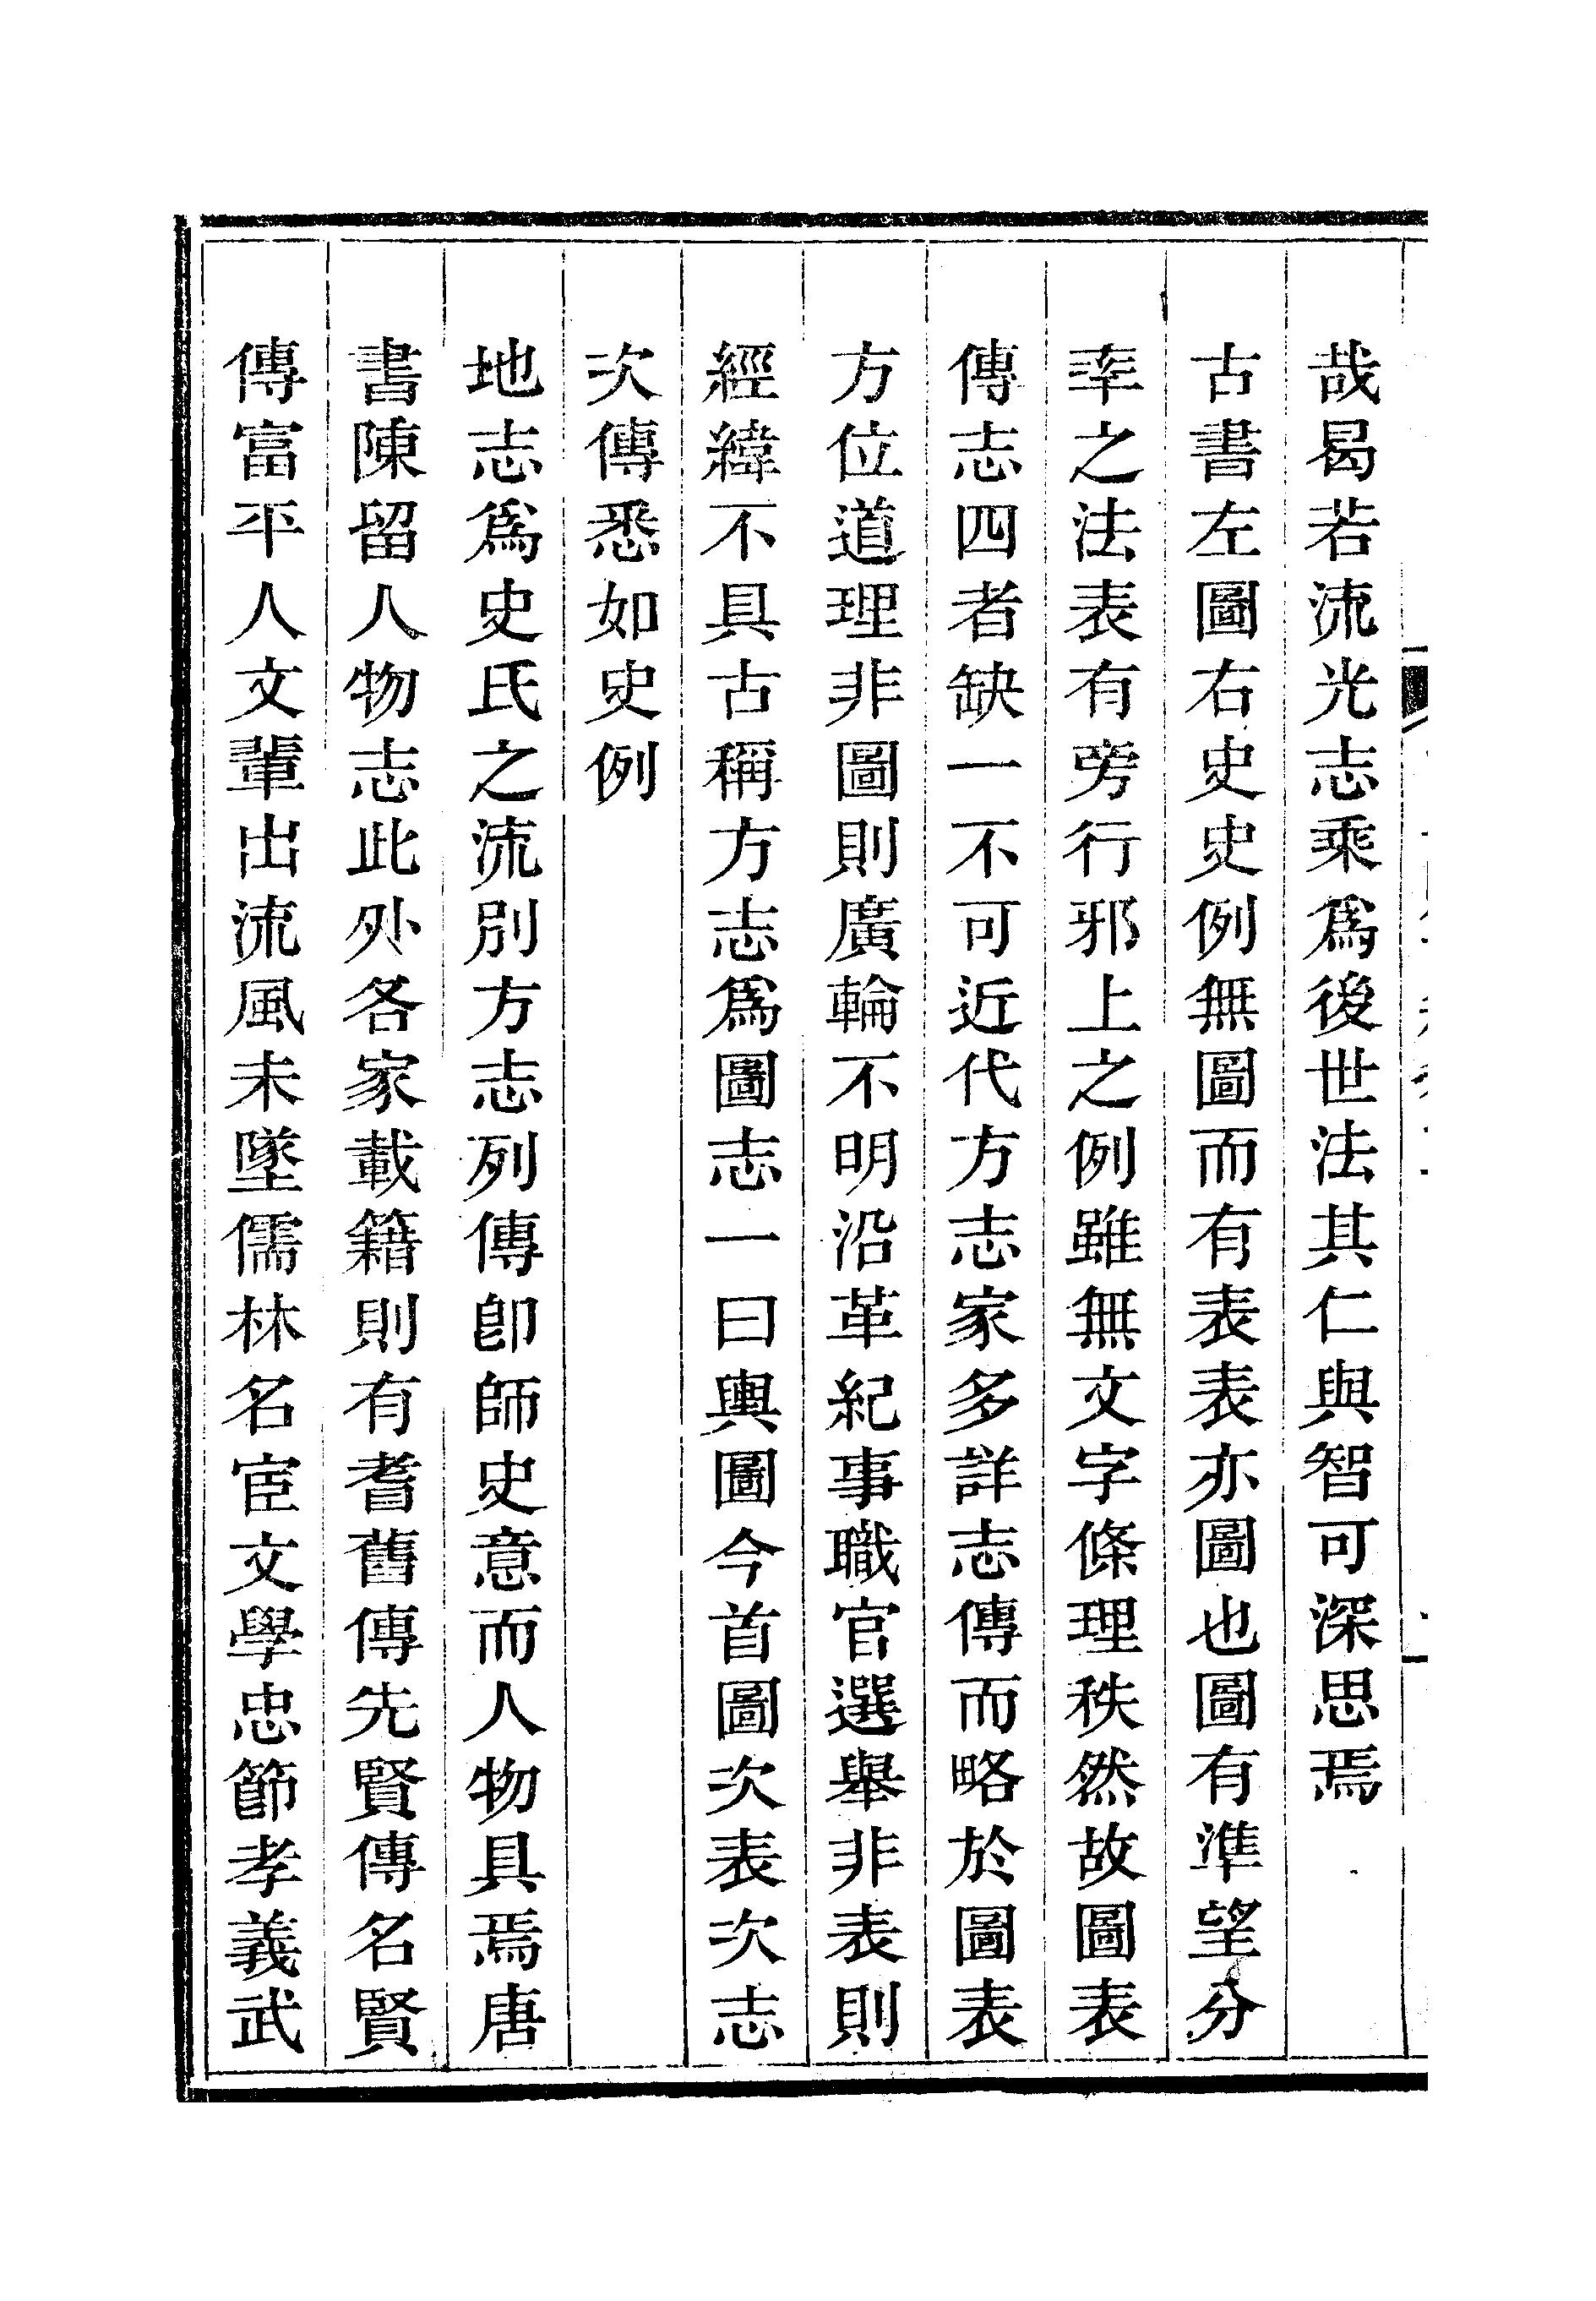 哉曷若流光志乘爲後世法其仁與智可深思焉
古書左圖右史史例無圖而有表表亦圖也圖有準望分
率之法表有旁行邪上之例雖無文字條理秩然故圖表
傳志四者缺一不可近代方志家多詳志傳而略於圖表
方位道理非圖則廣輪不明沿革紀事職官選舉非表則
經緯不具古稱方志爲圖志一曰輿圖今首圖次表次志
次傳悉如史例
地志爲史氏之流別方志列傳卽師史意而人物具焉唐
書陳留人物志此外各家載籍則有耆舊傳先賢傳名賢
傳富平人文輩出流風未墜儒林名宦文學忠節孝義武